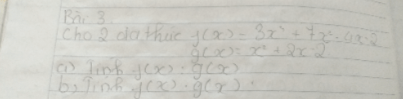 Bài 3
Cho 2 đa thức f(x) = 3x³ + 7x² - 4x - 2
g(x) = x² + 2x - 2
a) Tính f(x) : g(x)
b) Tính f(x) . g(x)